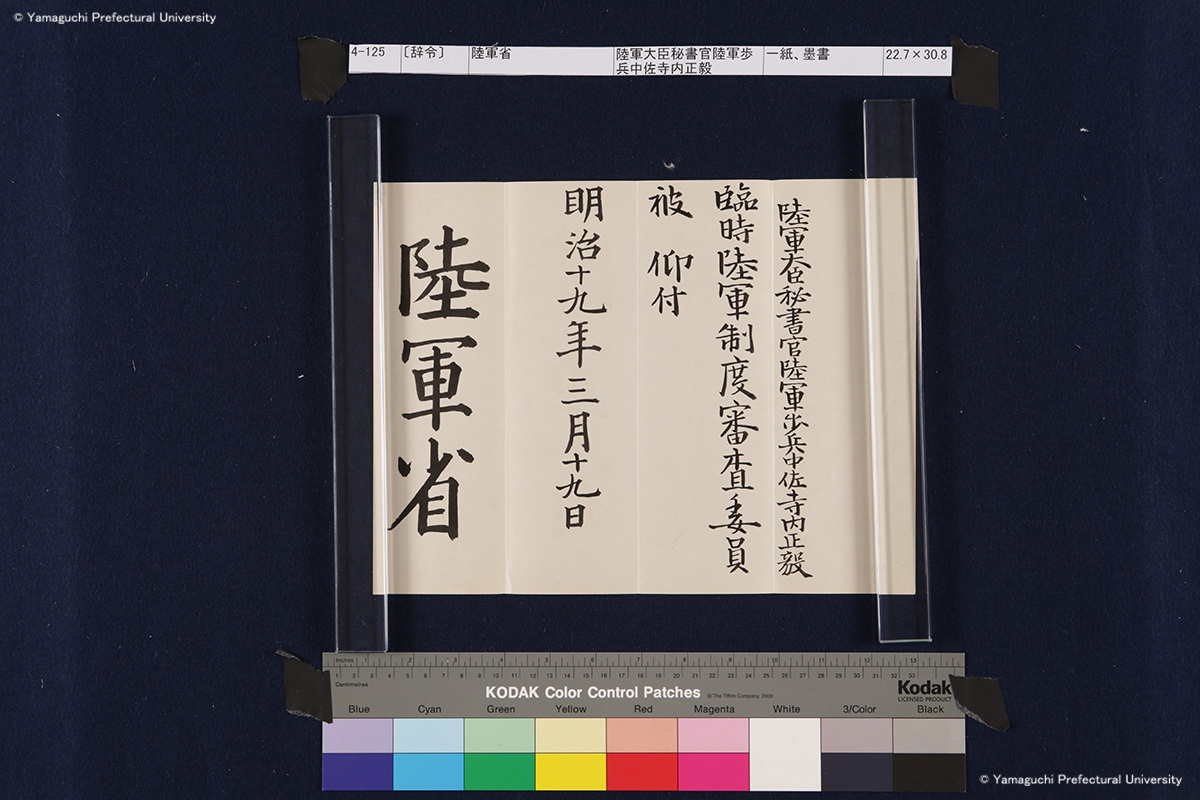 © Yamaguchi Prefectural University
4-125 〔辞令〕 陸軍省 陸軍大臣秘書官陸軍歩 一紙、墨書 22.7×30.8
兵中佐寺内正毅
陸軍大臣秘書官陸軍歩兵中佐寺内正毅
臨時陸軍制度審査委員
被 仰付
明治十九年三月十九日
陸軍省
Inches 1 2 3 4 5 6 7 8 9 10 11 12 13
1 2 3 4 5 6 7 8 9 10 11 12 13 14 15 16 17 18 19 20 21 22 23 24 25 26 27 28 29 30 31 32 33
Centimetres
KODAK Color Control Patches © The Tiffen Company, 2000
Kodak
LICENSED PRODUCT
Blue Cyan Green Yellow Red Magenta White 3/Color Black
© Yamaguchi Prefectural University